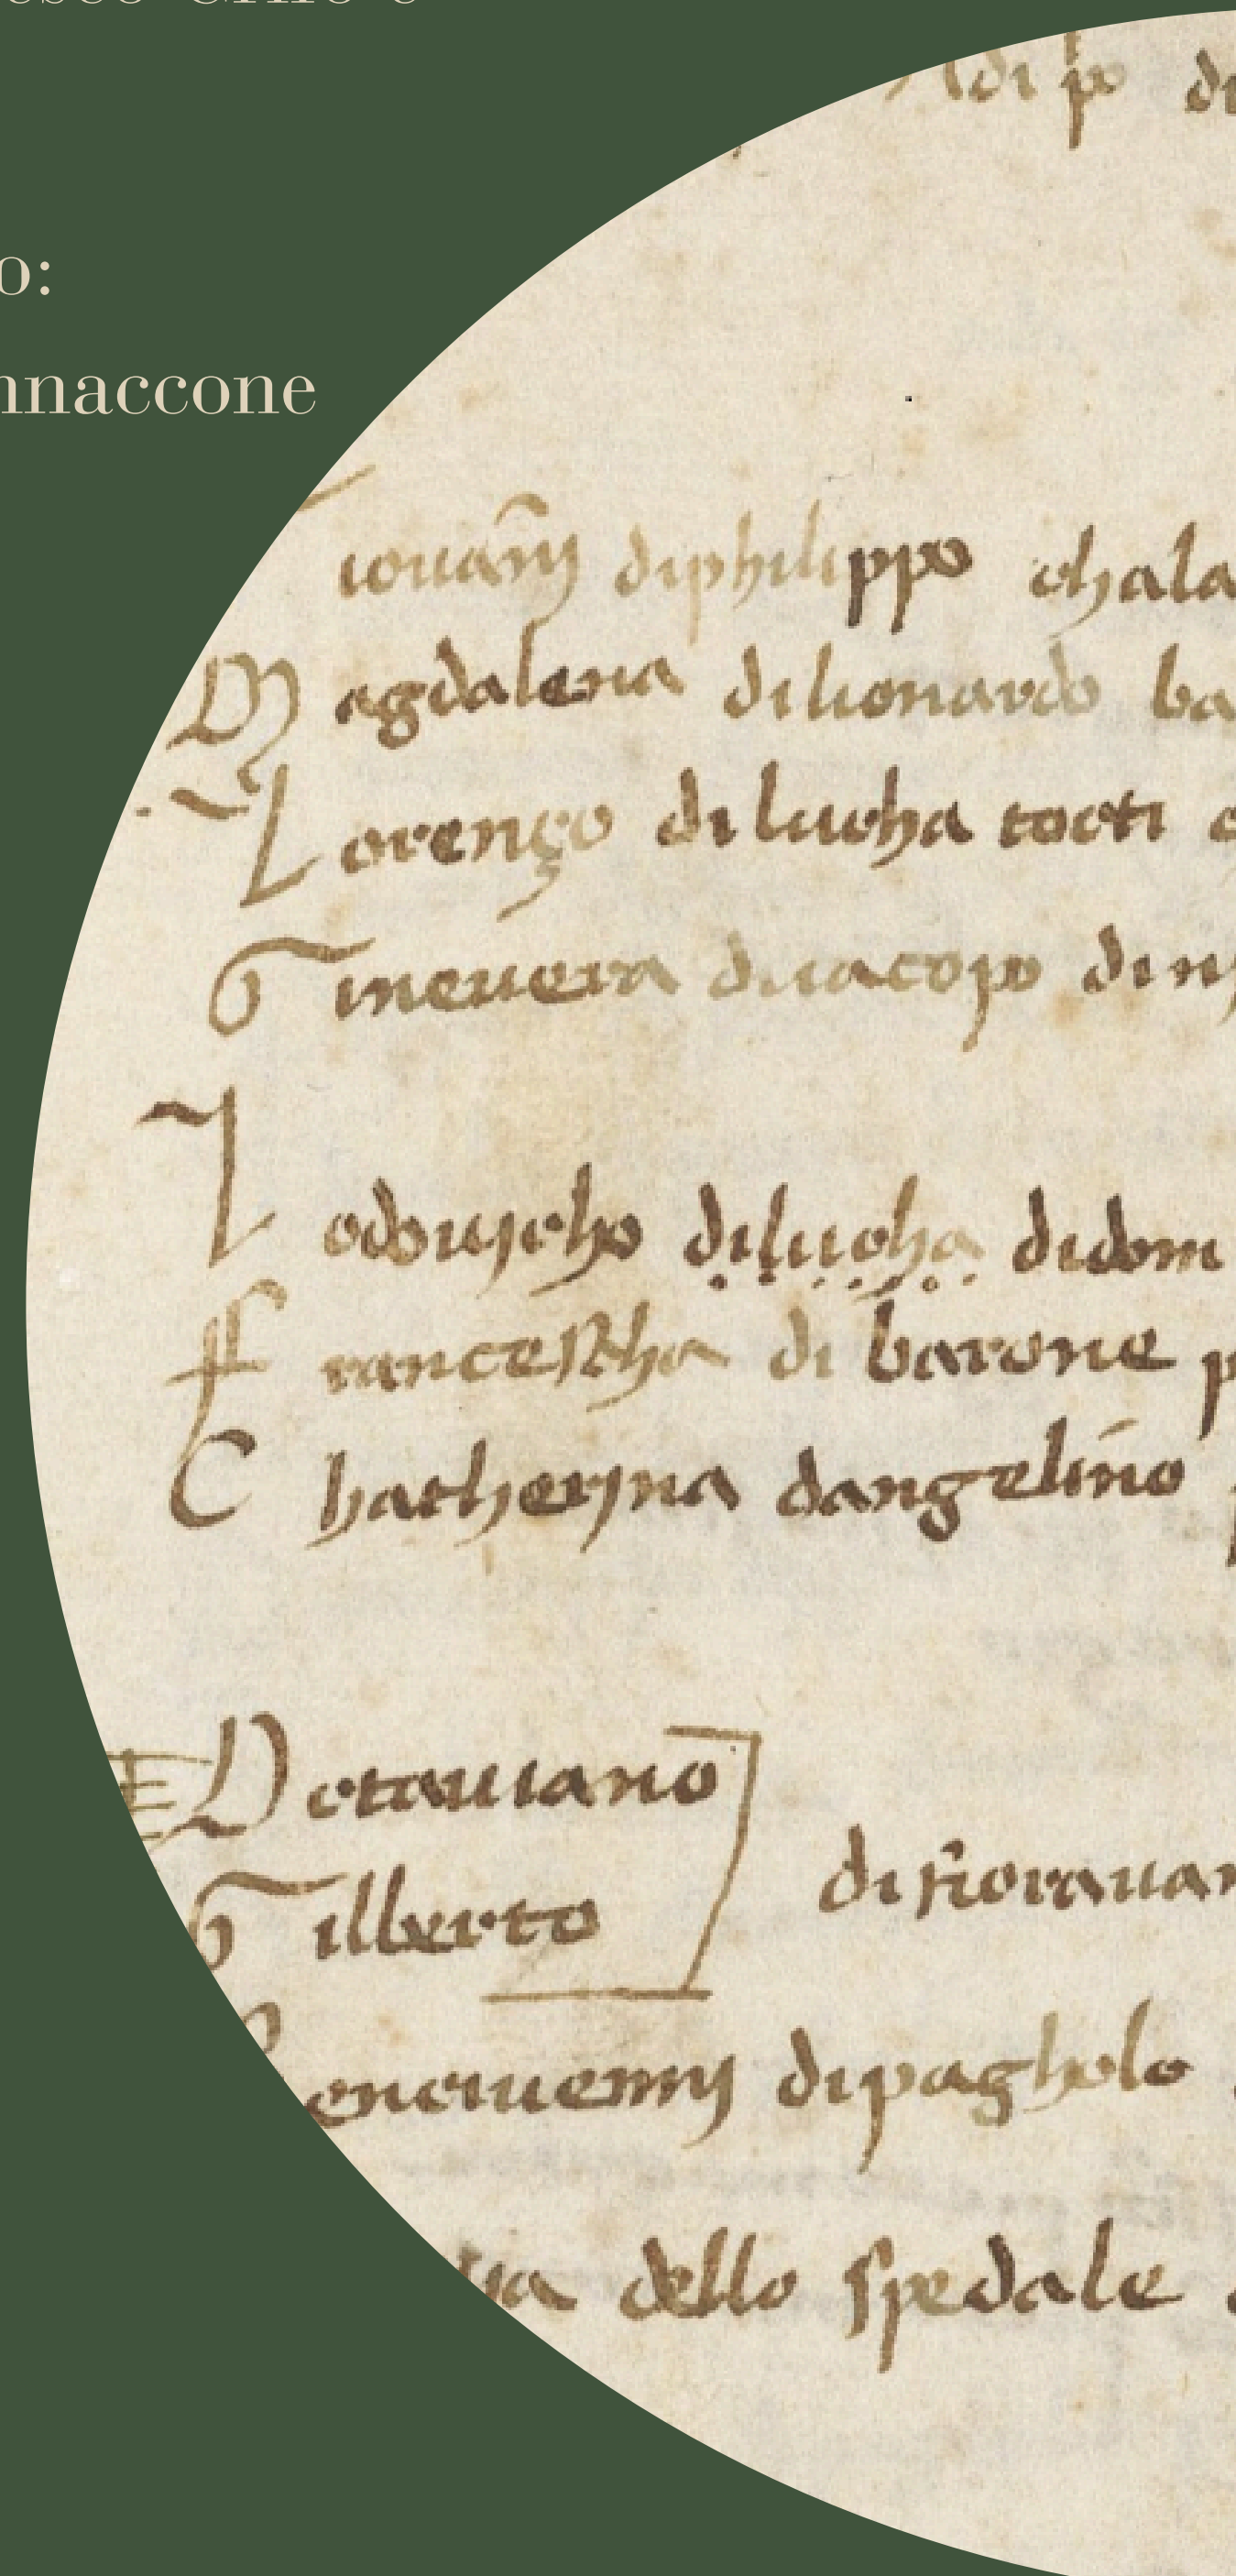 o:
nnaccone
Adi p di
iouanj di philippo chala
Magdalena di lionardo ba
Lorenço di lucha tocti
Gineuera di iacopo di
Lodouicho di lucha di dom
Francescha di barone p
Chatherina dangelino
Octauiano
Gilberto
di fiorauan
di pagholo
dello spedale